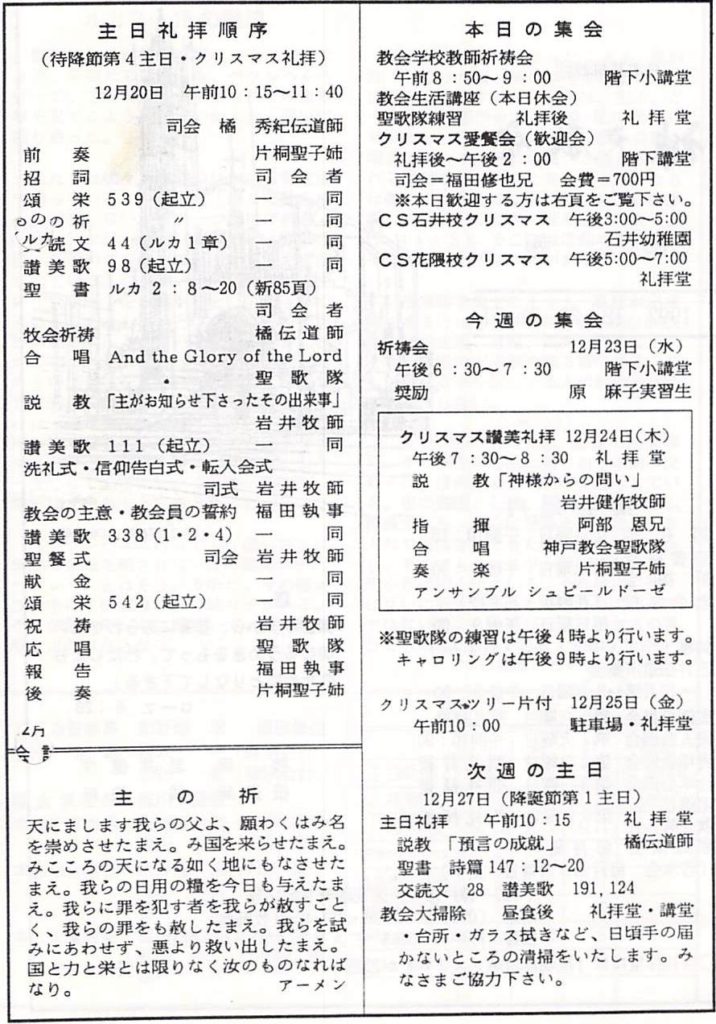 主日礼拝順序
（待降節第4主日・クリスマス礼拝）
12月20日　午前10：15～11：40
司会　橘　秀紀伝道師
前奏　片桐聖子姉
招詞　司会者
頌栄　539（起立）　一同
の祈　〃　一同
読文　44（ルカ1章）　一同
讃美歌　98（起立）　一同
聖書　ルカ2：8～20（新85頁）
司会者
牧会祈祷　橘伝道師
合唱　And the Glory of the Lord
聖歌隊
説教　「主がお知らせ下さったその出来事」
岩井牧師
讃美歌　111（起立）　一同
洗礼式・信仰告白式・転入会式
司式　岩井牧師
教会の主意・教会員の誓約　福田執事
讃美歌　338（1・2・4）　一同
聖餐式　司会　岩井牧師
献金　一同
頌栄　542（起立）　一同
祝祷　岩井牧師
応唱　聖歌隊
報告　福田執事
後奏　片桐聖子姉
主の祈
天にまします我らの父よ、願わくはみ名
を崇めさせたまえ。み国を来らせたまえ。
みこころの天になる如く地にもなさせた
まえ。我らの日用の糧を今日も与えたま
え。我らに罪を犯す者を我らが赦すごと
く、我らの罪をも赦したまえ。我らを試
みにあわせず、悪より救い出したまえ。
国と力と栄とは限りなく汝のものなれば
なり。　アーメン
本日の集会
教会学校教師祈祷会
午前8：50～9：00　階下小講堂
教会生活講座（本日休会）
聖歌隊練習　礼拝後　礼拝堂
クリスマス愛餐会（歓迎会）
礼拝後～午後2：00　階下講堂
司会＝福田修也兄　会費＝700円
※本日歓迎する方は右頁をご覧下さい。
CS石井校クリスマス　午後3:00～5:00
石井幼稚園
CS花隈校クリスマス　午後5:00～7:00
礼拝堂
今週の集会
祈祷会　12月23日（水）
午後6：30～7：30　階下小講堂
奨励　原　麻子実習生
クリスマス讃美礼拝　12月24日(木)
午後7：30～8：30　礼拝堂
説教「神様からの問い」
岩井健作牧師
指揮　阿部　恩兄
合唱　神戸教会聖歌隊
奏楽　片桐聖子姉
アンサンブル　シュピールドーゼ
※聖歌隊の練習は午後4時より行います。
キャロリングは午後9時より行います。
クリスマスツリー片付　12月25日（金）
午前10：00　駐車場・礼拝堂
次週の主日
12月27日（降誕節第1主日）
主日礼拝　午前10：15　礼拝堂
説教　「預言の成就」　橘伝道師
聖書　詩篇147：12～20
交読文　28　讃美歌　191, 124
教会大掃除　昼食後　礼拝堂・講堂
・台所・ガラス拭きなど、日頃手の届
かないところの清掃をいたします。み
なさまご協力下さい。